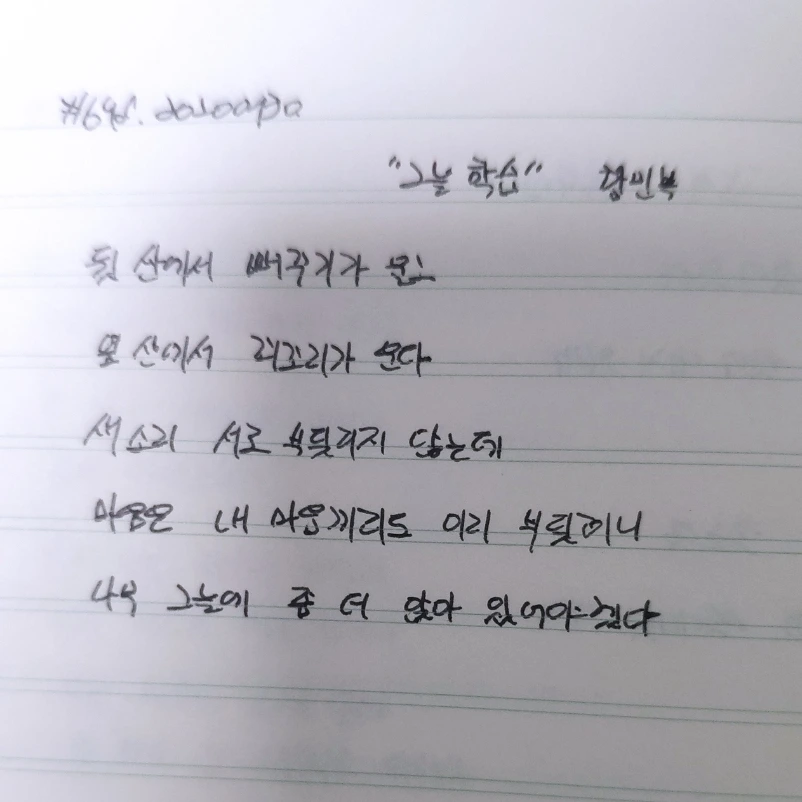 "그늘 학습" 함민복
뒷 산에서 뻐꾸기가 울고
옆 산에서 꾀꼬리가 운다
새소리 서로 부딪히지 않는데
마음은 내 마음끼리도 이리 부딪히니
나무 그늘에 좀 더 앉아 있어야겠다